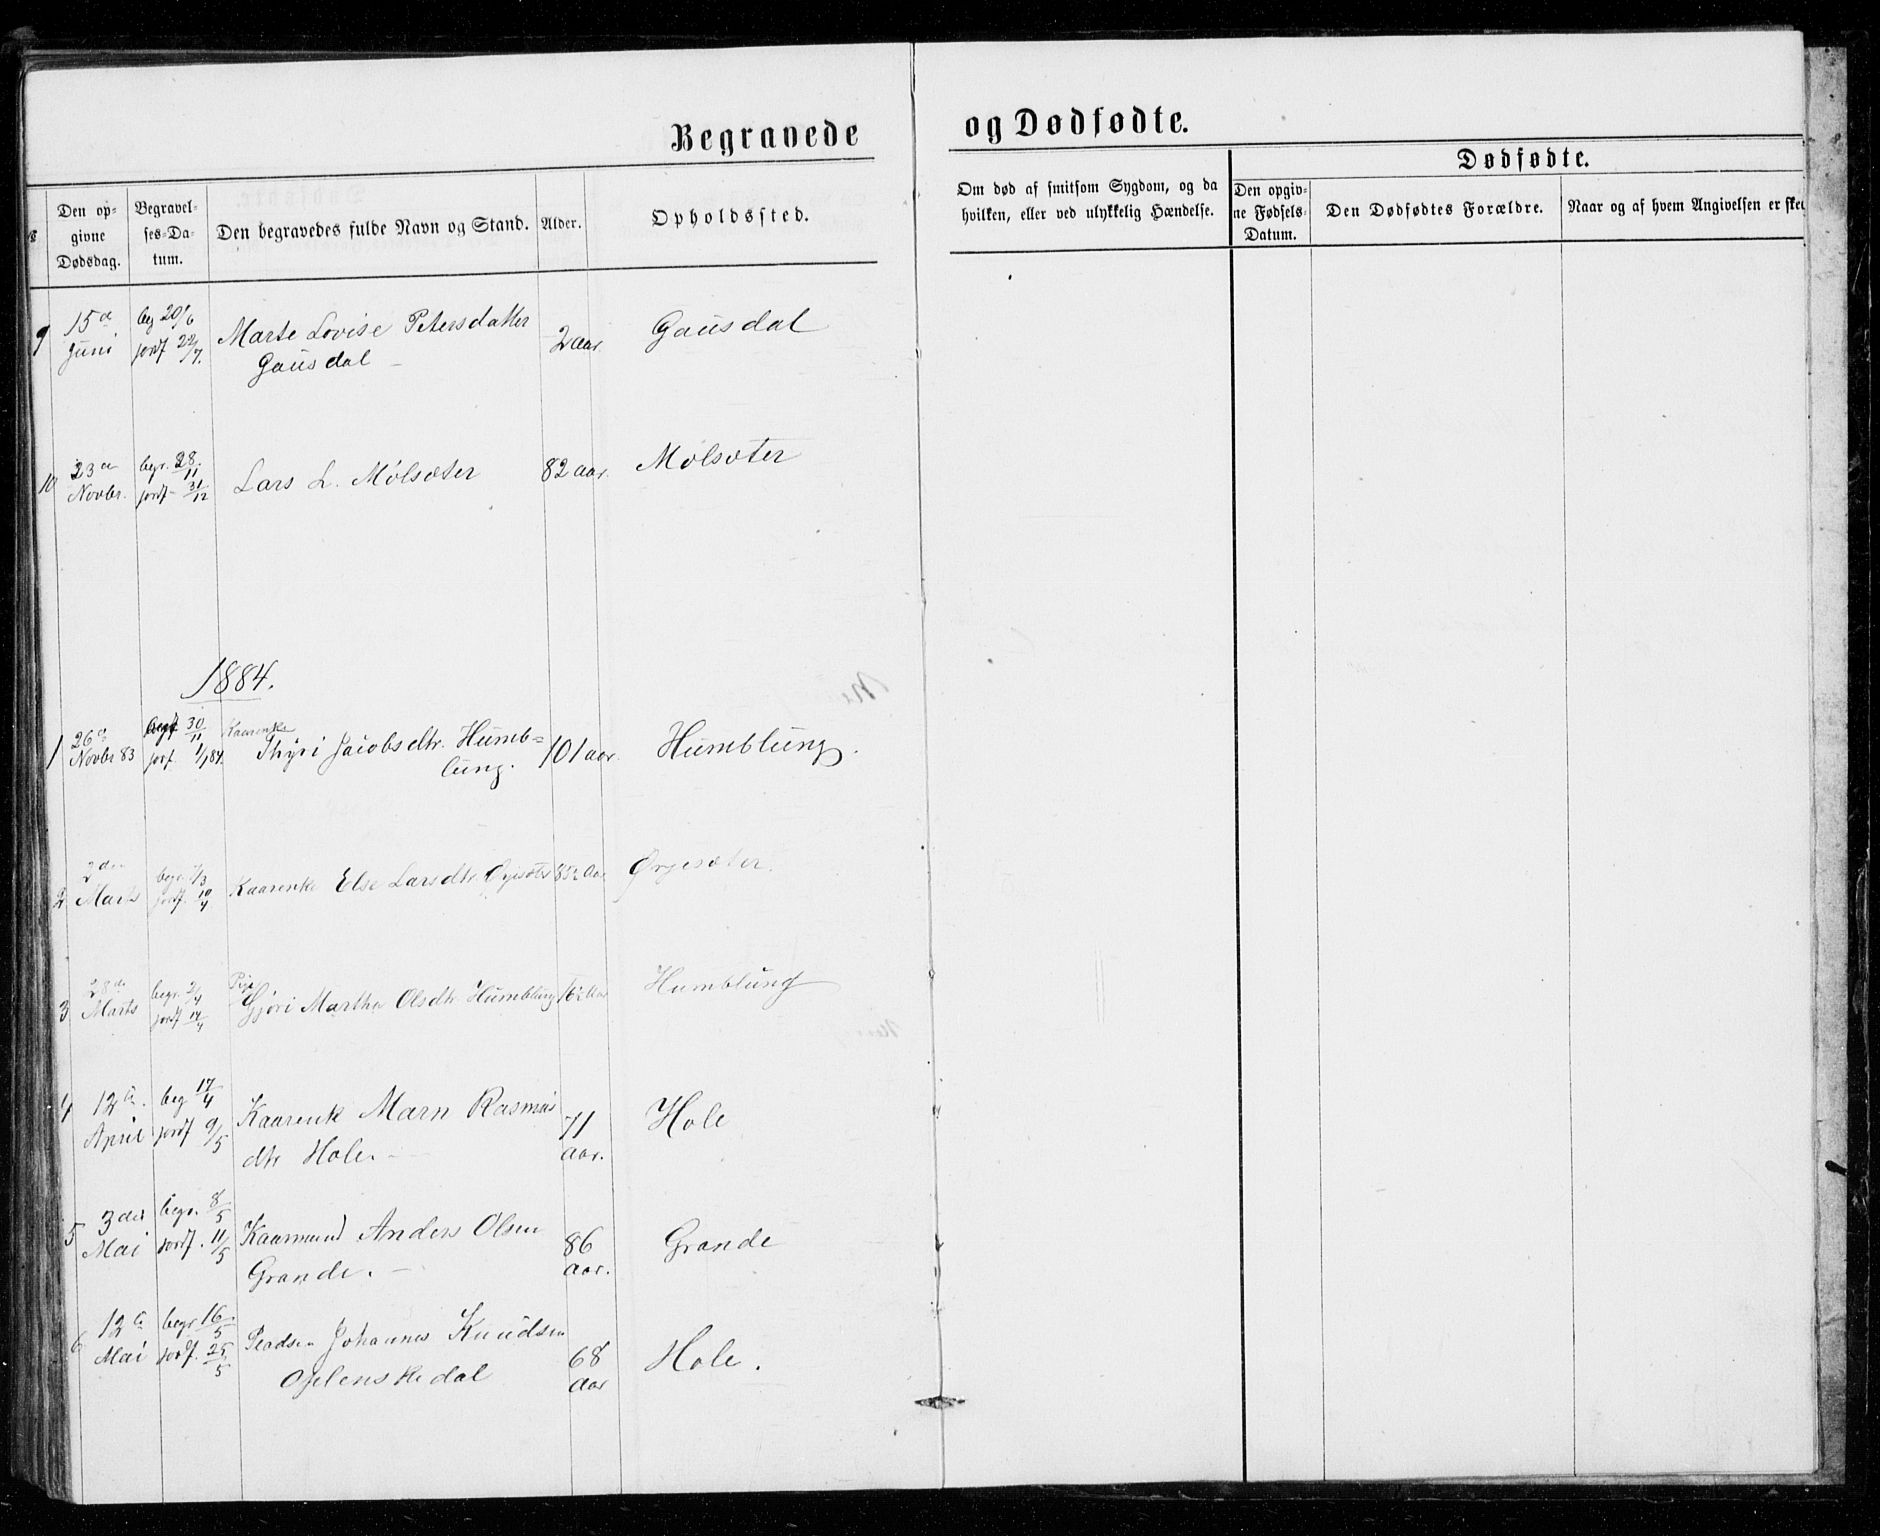 Begravede
og Dødfødte.
Den op-
givne
Dødsdag.
Begravel-
ses-Da-
tum.
Den begravedes fulde Navn og Stand.
Alder.
Opholdssted.
Om død af smitsom Sygdom, og da
hvilken, eller ved ulykkelig Hændelse.
Dødfødte.
Den opgiv-
ne Fødsels-
Datum.
Den Dødfødtes Forældre.
Naar og af hvem Angivelsen er skee
9
15de
Juni
beg 20/6
jordf 22/7.
Marte Lovise Petersdatter
Gausdal
2 aar
Gausdal
10
23de
Novbr.
begr. 28/11
jordf 31/12
Lars L. Mólsæter
82 aar.
Mólsæter
1884.
1
26de
Novbr 83
30/11
jorf. 1/1 84.
Kaarenke
Thyri Jacobsdtr. Humb=
lung.
101 aar.
Humblung.
2
2den
Marts
begr. /3
jordf. 10/4
Kaarenke Else Larsdtr
85½ Aar
Ørjesæter.
3
28de
Marts
begr. 2/4
jordf 14/4
Pige
Gjøri Martha Olsdtr. Humblung
16½ Aar
Humblung
4
12te
April
beg 17/4
jordf 9/5
Kaarenk Marn Rasmus
dtr Hole.
71
aar.
Hole
5
3die
Mai
begr. 8/5
jordf. 11/5
Kaarmand Anders Olsen
Grande.
86
aar.
Grande
6
12te
Mai
begr 16/5
jordf. 25/5
Pladsen Johannes Knudsen
Oplenskedal
68
aar
Hole.